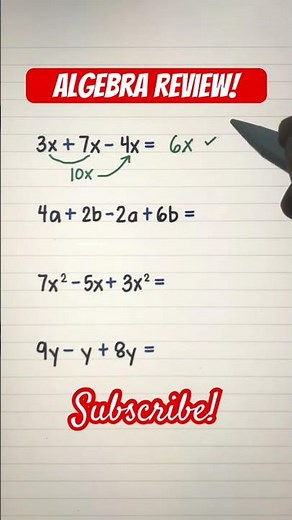 ALGEBRA REVIEW!
3x + 7x - 4x = 6x ✓
10x
4a + 2b - 2a + 6b =
7x² - 5x + 3x² =
9y - y + 8y =
Subscribe!